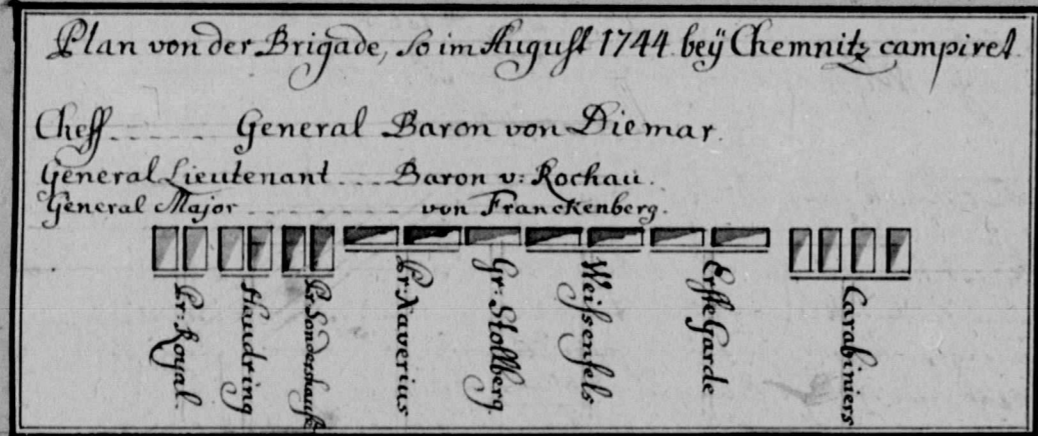 Plan von der Brigade, so im August 1744. beÿ Chemnitz campiret.
Cheff..... General Baron von Diemar.
General Lieutenant.... Baron v: Rochau.
General Major......... von Franckenberg.
Pr: Royal.
Haudring
Pr. Sondershauß
Pr: Xaverius
Gr: Stollberg.
Weißenfels
Erste Garde
Carabiniers